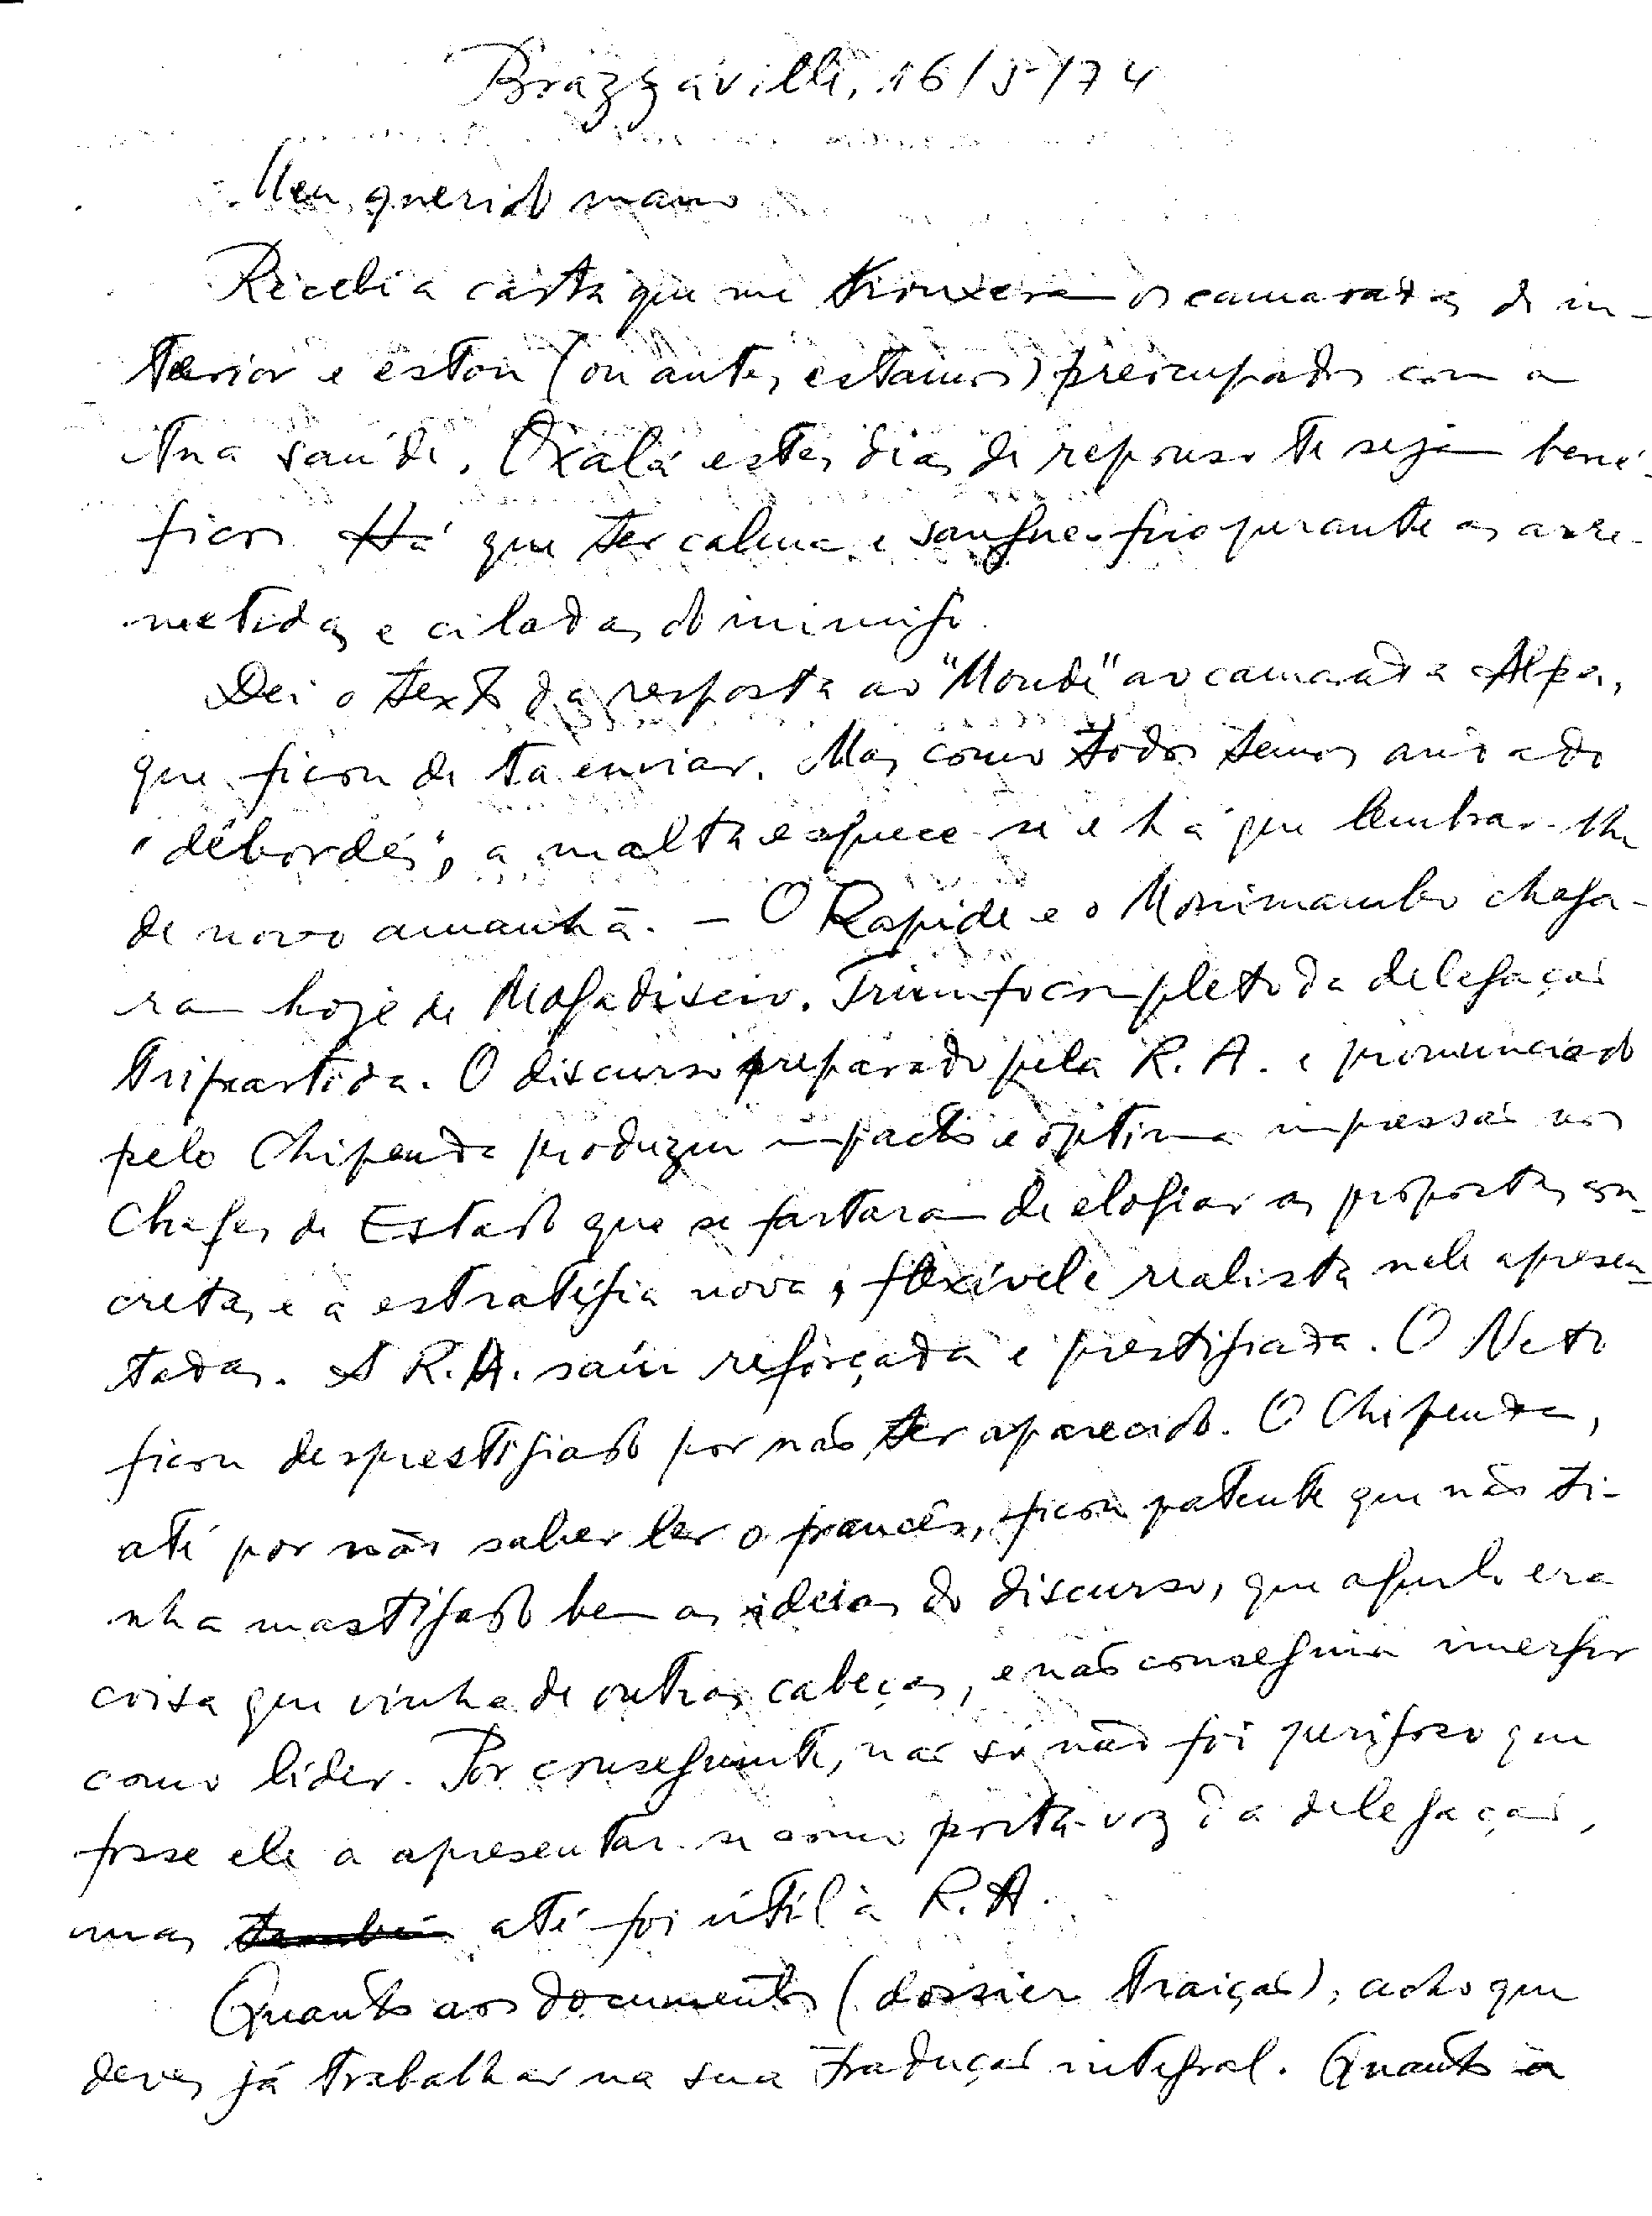 Brazzaville, 16/5/74
Meu querido mano
Recebi a carta que me trouxeram os camaradas do in-
terior e estou (ou antes, estamos) preocupados com a
tua saúde. Oxalá estes dias de repouso te sejam bené-
ficos. Há que ter calma e sangue-frio perante as arre-
metidas e ciladas do inimigo.
Dei o texto da resposta ao "Monde" ao camarada Alpa,
que ficou de ta enviar. Mas como todos temos andado
"débordés", a malta esquece-se e há que lembrar-lhe
de novo amanhã. — O Rapide e o Monimambo chega-
ram hoje de Mogadiscio. Triunfo completo da delegação
tripartida. O discurso preparado pela R.A. e pronunciado
pelo Chipenda produziu impacto e óptima impressão nos
Chefes de Estado que se fartaram de elogiar as propostas con-
cretas e a estratégia nova, flexível e realista nele apresen-
tadas. A R.A. saíu reforçada e prestigiada. O Neto
ficou desprestigiado por não ter aparecido. O Chipenda,
até por não saber ler o francês, ficou patente que não ti-
nha mastigado bem as ideias do discurso, que aquilo era
coisa que vinha de outras cabeças, e não conseguiu imergir
como líder. Por conseguinte, não só não foi perigoso que
fosse ele a apresentar-se como porta-voz da delegação,
mas também até foi útil à R.A.
Quanto aos documentos (dossier traição), acho que
deves já trabalhar na sua tradução integral. Quanto a